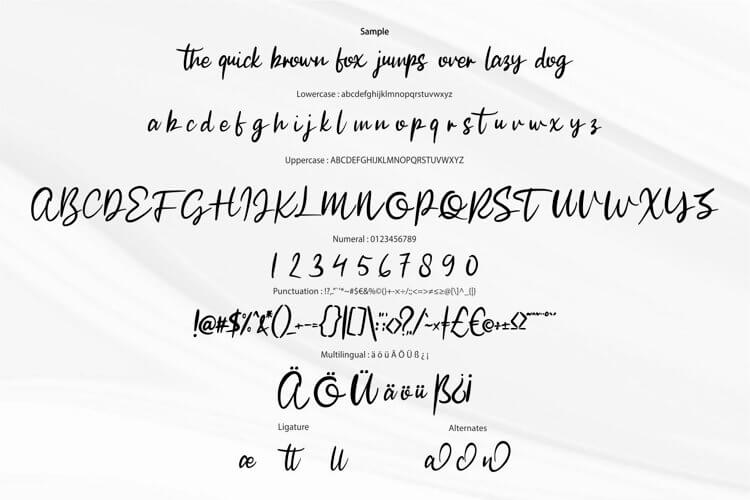 Sample
the quick brown fox jumps over lazy dog
Lowercase : abcdefghijklmnopqrstuvwxyz
a b c d e f g h i j k l m n o p q r s t u v w x y z
Uppercase : ABCDEFGHIJKLMNOPQRSTUVWXYZ
ABCDEFGHIJKLMNOPQRSTUVWXYZ
Numeral : 0123456789
1 2 3 4 5 6 7 8 9 0
Punctuation : !?,.:"`'*~#$€&%©()+-×÷/;:<=>≠≤≥@[\]^_{|}
!@#$%^&*()_+-={}|[]\:;<>?,/`~×÷£€©+±≤≥
Multilingual : ä ö ü Ä Ö Ü ß ¿ ¡
Ä Ö Ü ä ö ü ß ¿ ¡
Ligature Alternates
æ tt ll a o n